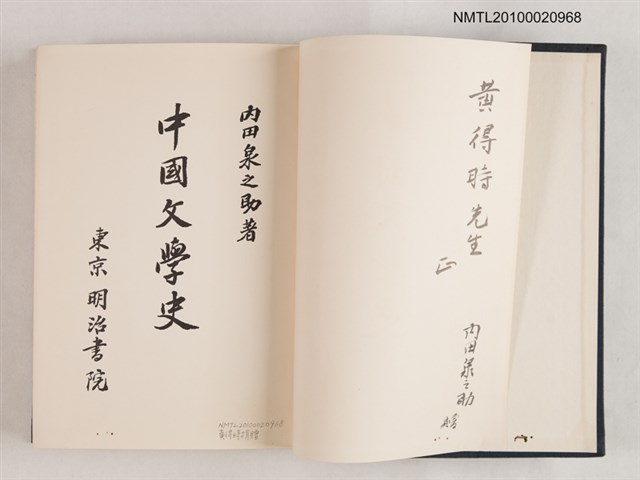 NMTL20100020968
黄得時先生
正
内田泉之助
内田泉之助著
中國文學史
東京 明治書院